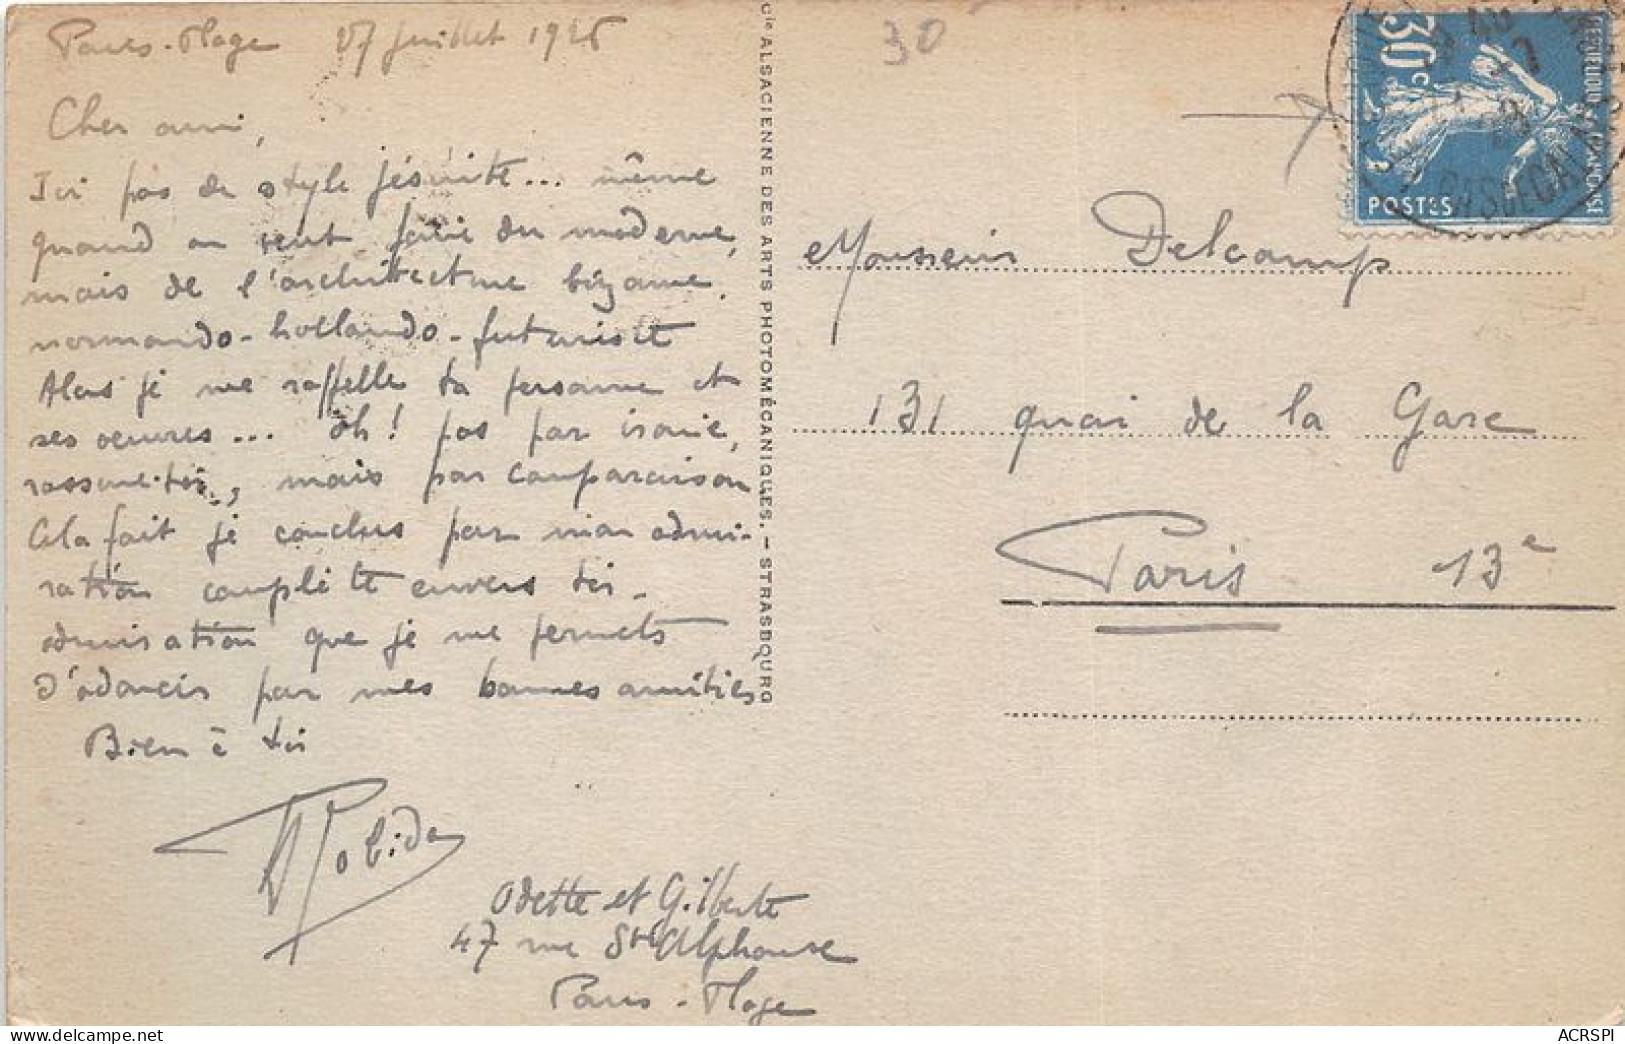 Paris-Plage 27 juillet 1926
Cher ami,
Ici pas de style jésuite... même
quand on veut faire du moderne,
mais de l'architecture bizarre
normando-hollando-futuriste
Alors je me rappelle ta personne et
ses oeuvres... oh! pas par ironie,
rassure-toi, mais par comparaison
Cela fait je conclus par mon admi-
ration complète envers toi.
admiration que je me permets
d'adoucir par mes bonnes amitiés
Bien à toi
Robida
Odette et Gilberte
47 rue St Alphonse
Paris-Plage
Cie ALSACIENNE DES ARTS PHOTOMÉCANIQUES. - STRASBOURG
30
30c
POSTES
PAS DE CALAIS
Monsieur Delcamp
131 quai de la Gare
Paris 13e
ACRSPI